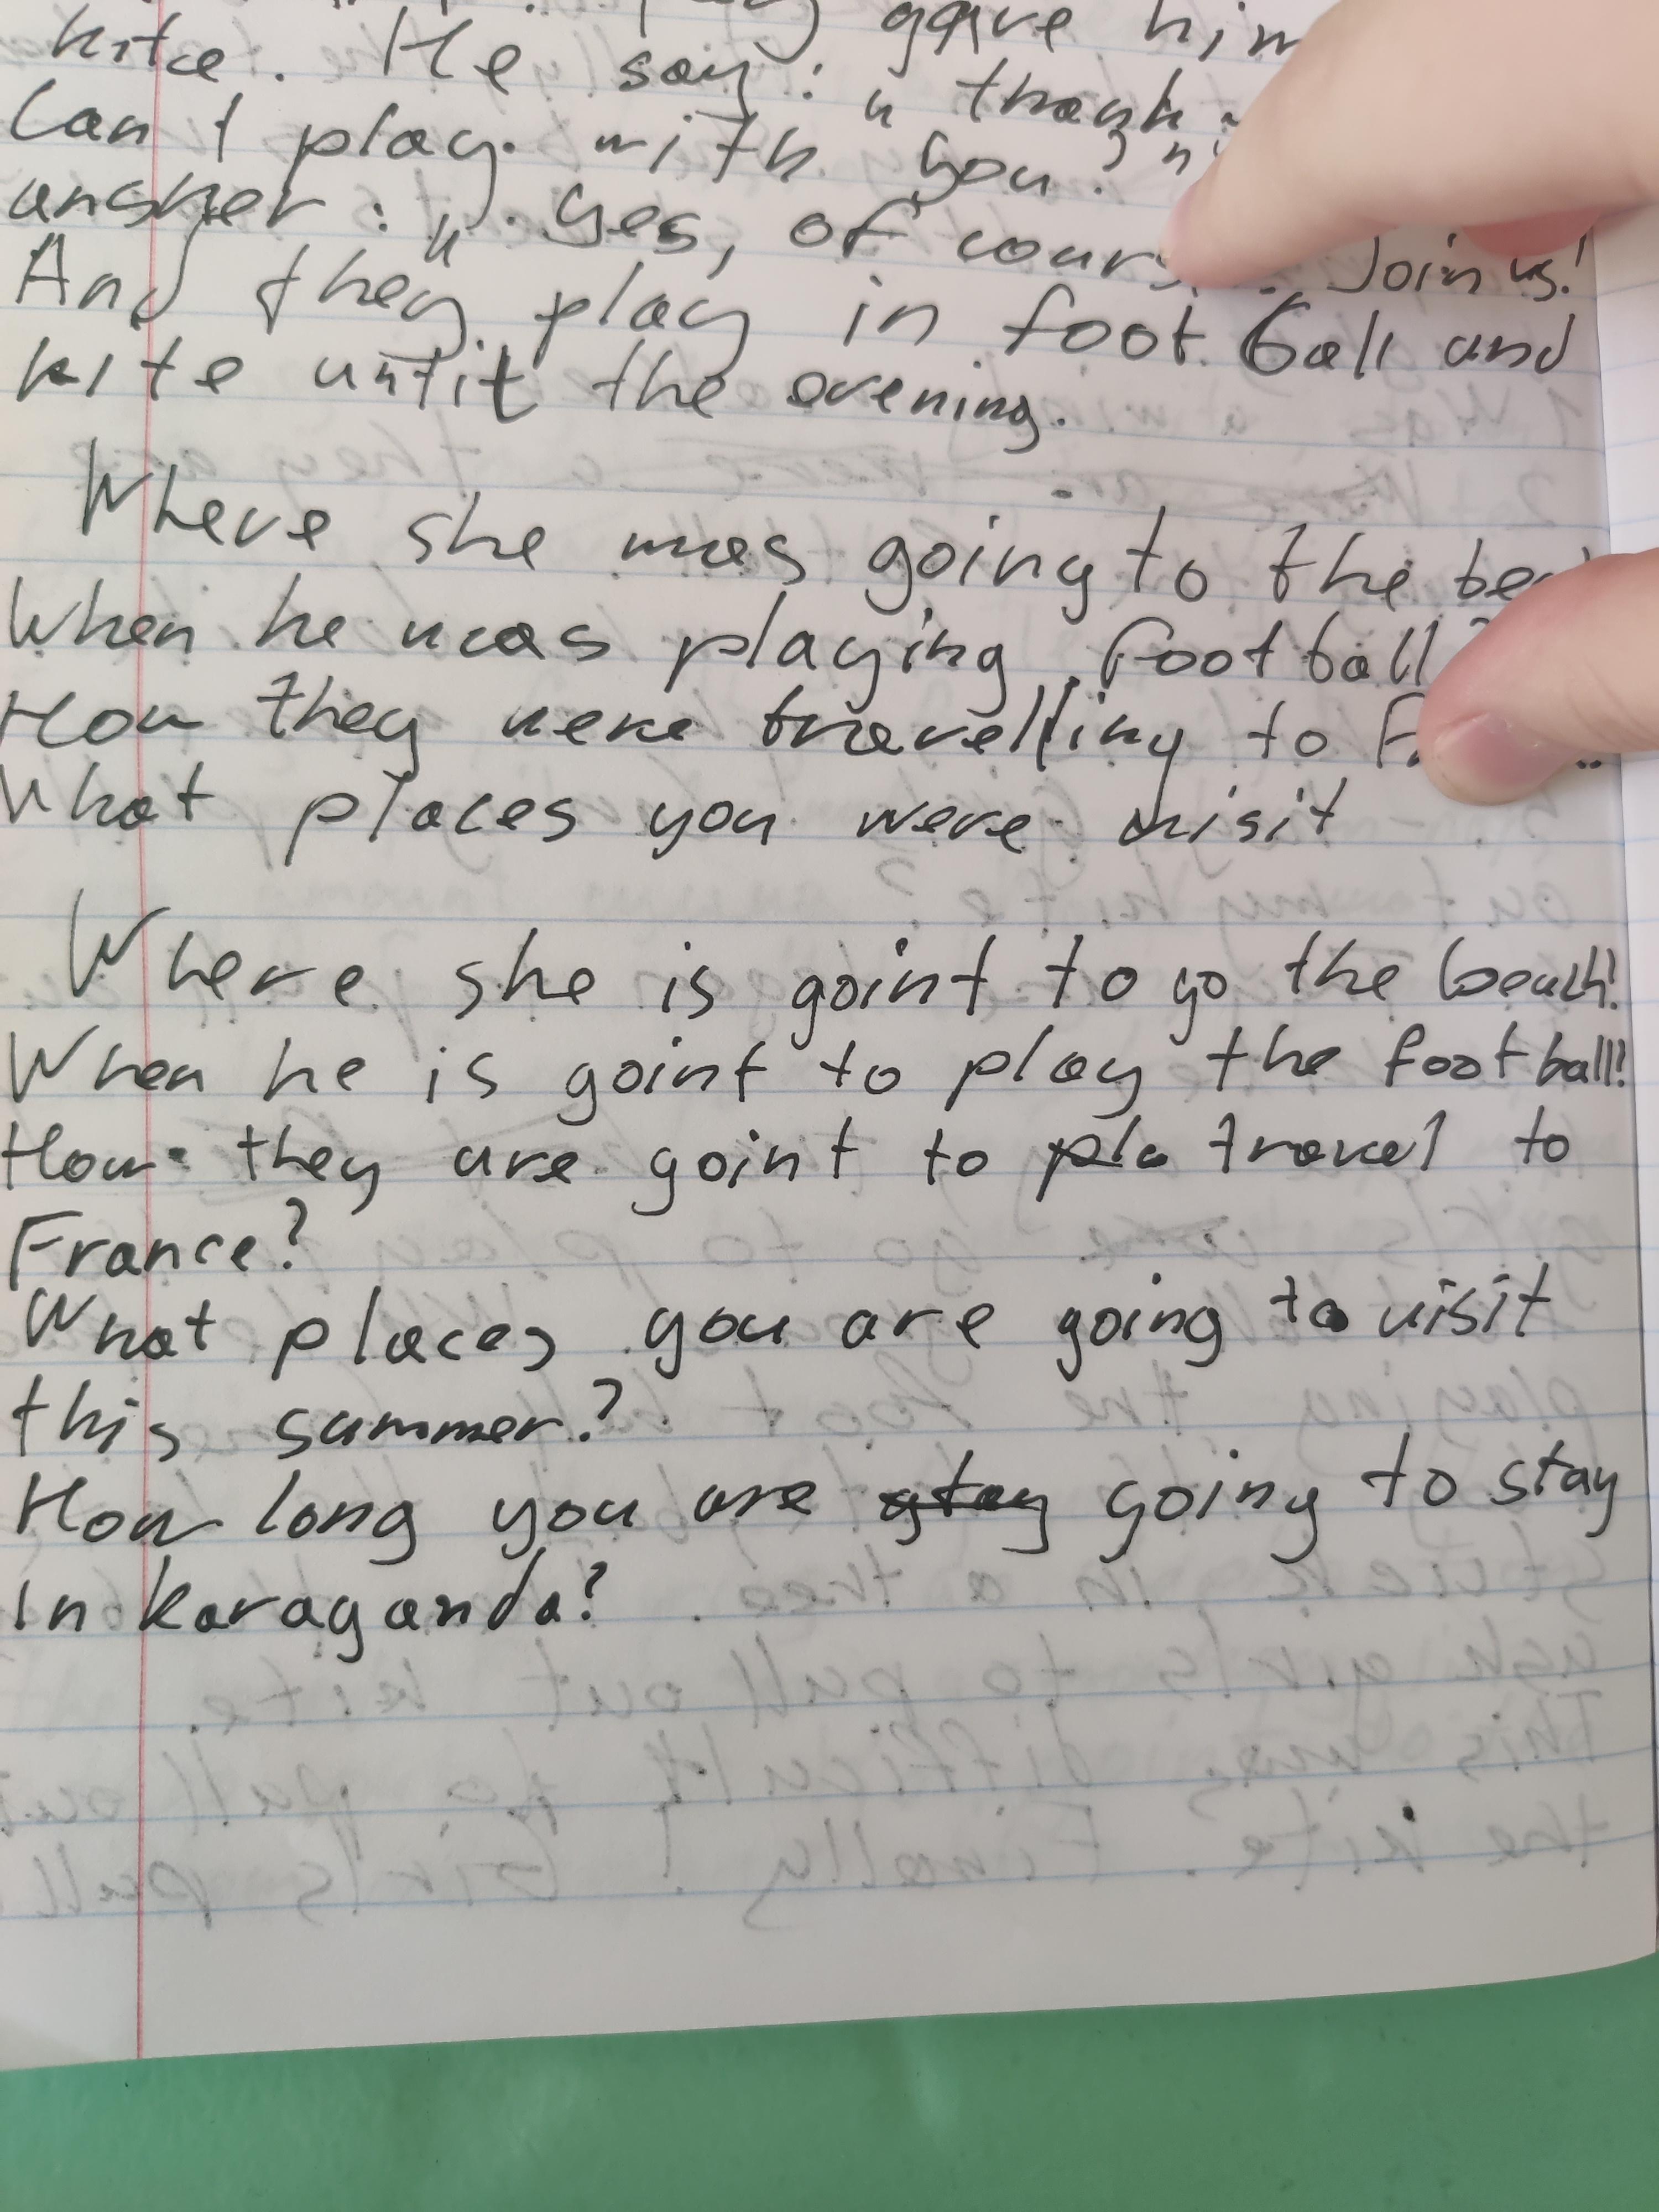 gave him
kite. He say: " thank
Can I play with you?"
answer: " Yes, of cours Join us!
And they play in foot ball and
kite until the evening.
Where she was going to the bea
When he was playing football?
How they were travelling to F
What places you were visit
Where she is goint to go the beach?
When he is goint to play the football?
How they are goint to pla travel to
France?
What places you are going to visit
this summer?
How long you are stay going to stay
in Karaganda?